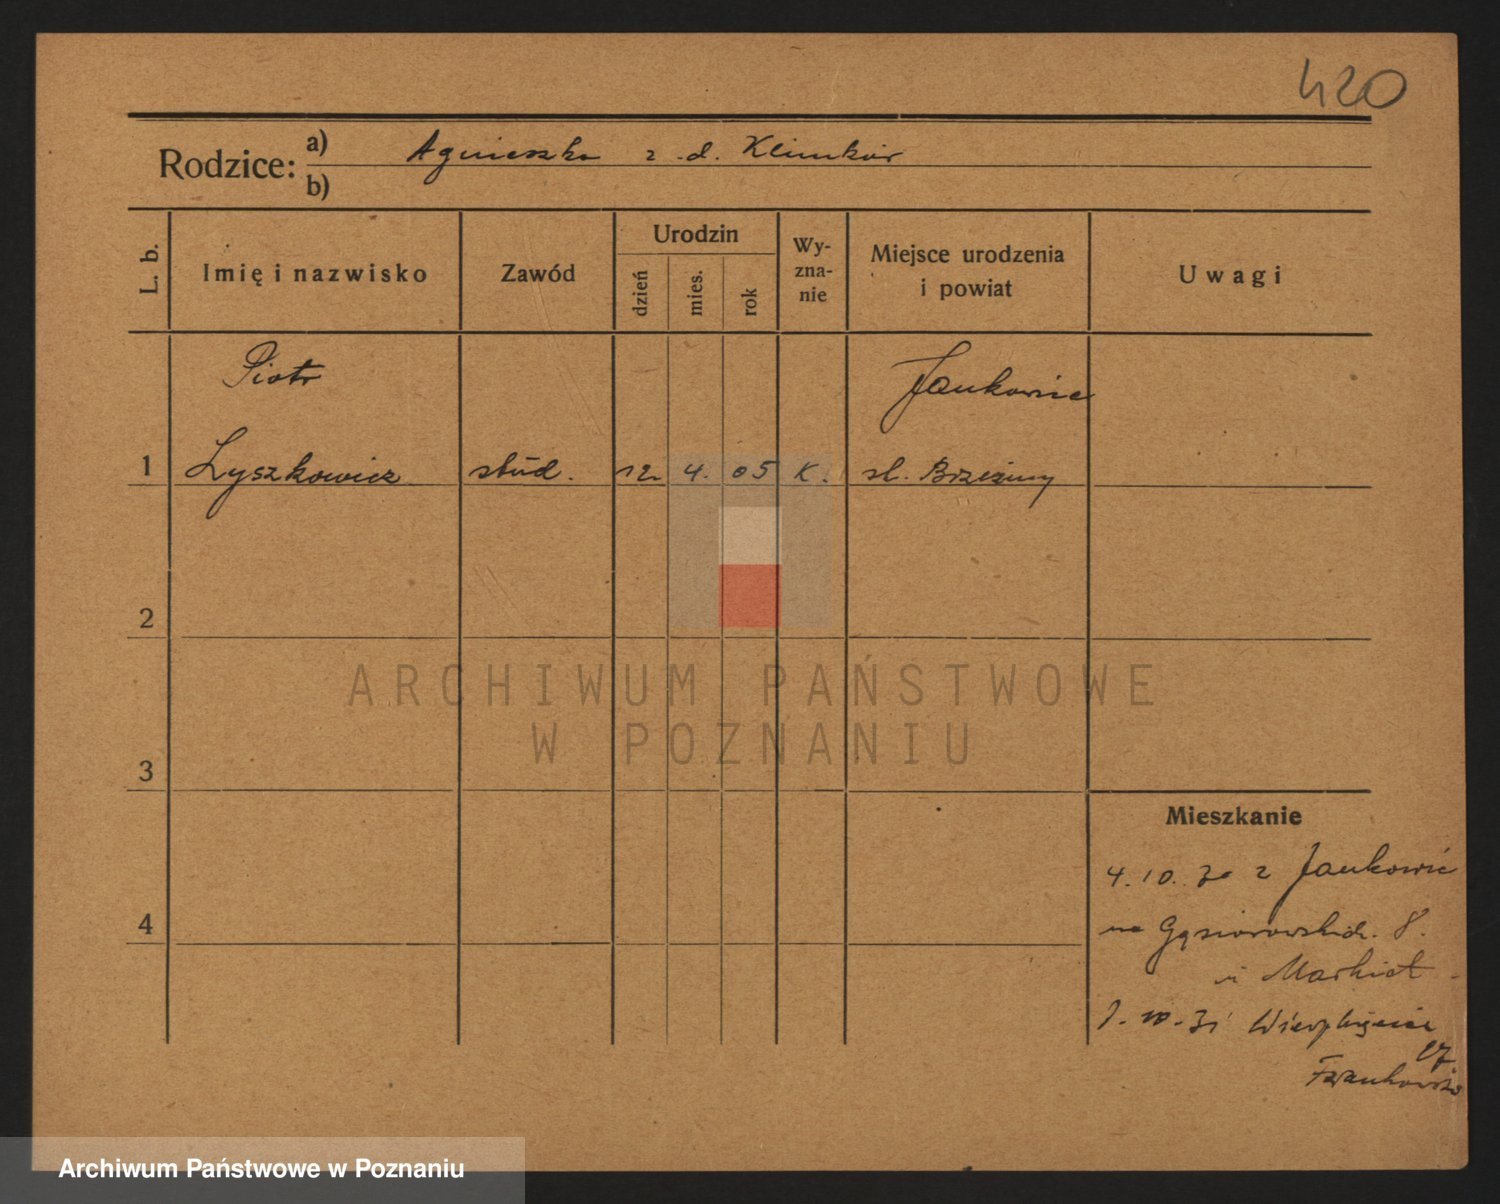 420
Rodzice: a) Agnieszka z d. Klimków
b)
L. b.
Imię i nazwisko
Zawód
Urodzin
dzień
mies.
rok
Wy-
zna-
nie
Miejsce urodzenia
i powiat
Uwagi
Piotr
Jankowice
1 Łyszkowicz stud. 12 4. 05 K. st. Brzeziny
2
3
4
Mieszkanie
4.10.30 z Jankowic
na Gąsiorowskich. 8.
.10.31
Frankowska
ARCHIWUM PAŃSTWOWE
W POZNANIU
Archiwum Państwowe w Poznaniu